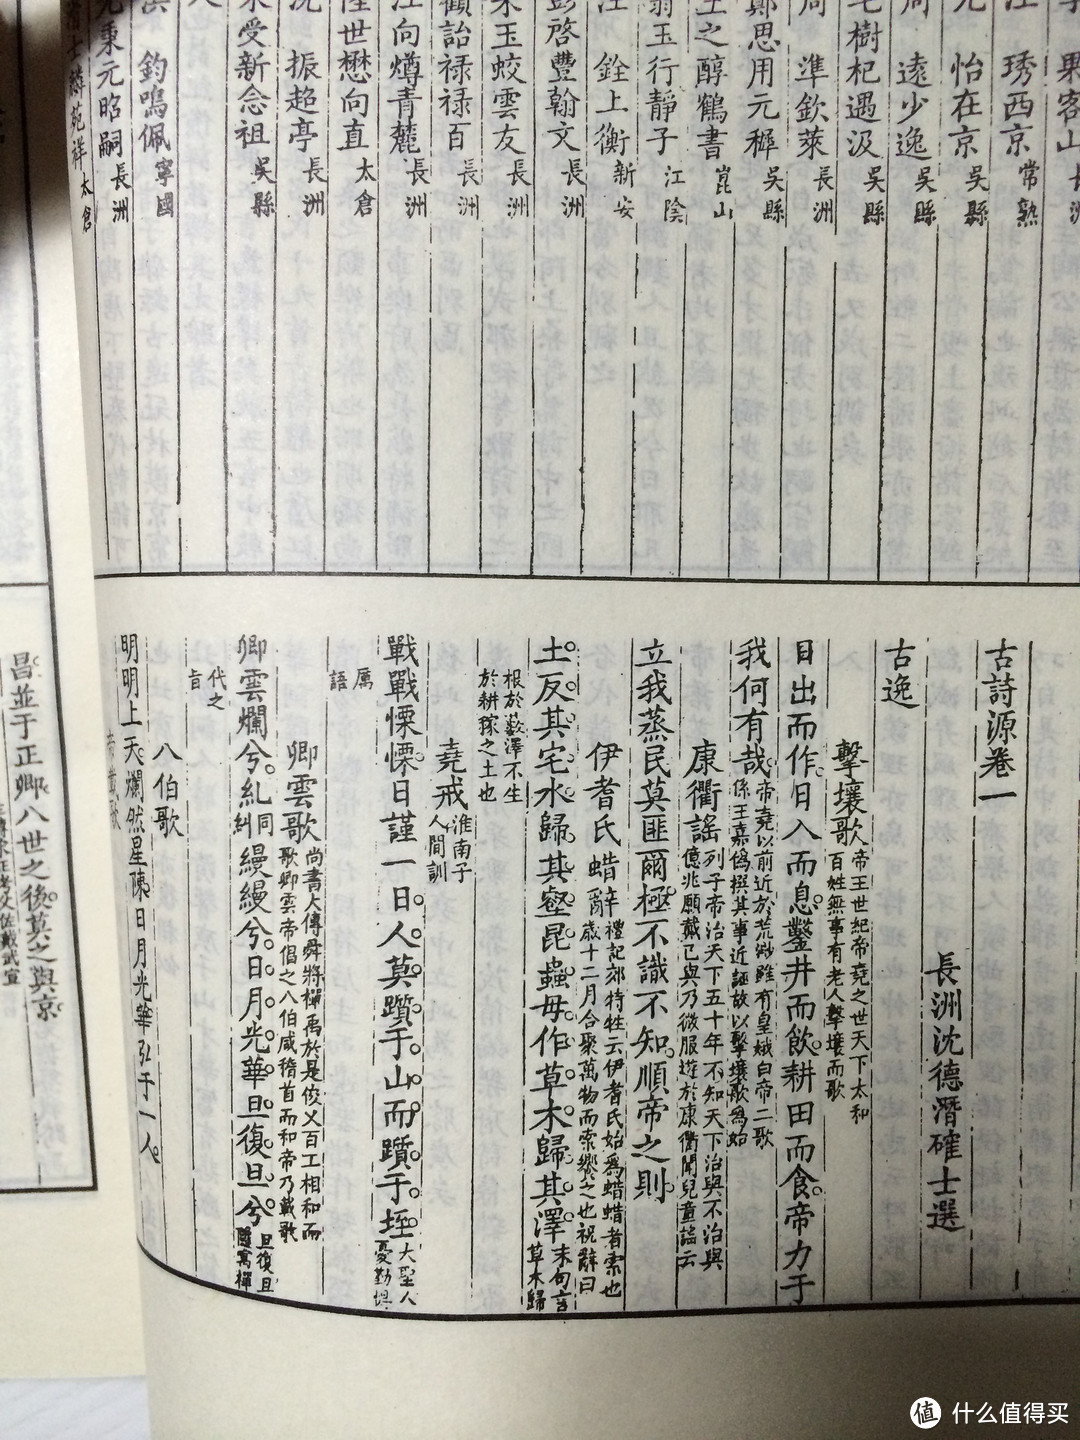 果客山長洲
琇西京常熟
怡在京吳縣
周遠少逸吳縣
毛樹杞遇汲吳縣
周準欽萊長洲
鄭思用元穉吳縣
王之醇鶴書崑山
翁玉行靜子江陰
汪銓上衡新安
彭啓豐翰文長洲
宋玉蛟雲友長洲
顧詒祿祿百長洲
江向燇青麓長洲
陸世懋向直太倉
沈振超亭長洲
受新念祖吳縣
鈞鳴佩寧國
秉元昭嗣長洲
苑祥太倉
古詩源卷一
長洲沈德潛確士選
古逸
擊壤歌帝王世紀帝堯之世天下太和
百姓無事有老人擊壤而歌
日出而作。日入而息。鑿井而飲。耕田而食。帝力于
我何有哉。帝堯以前近於荒渺雖有皇娥白帝二歌
係王嘉僞撰其事近誣故以擊壤歌爲始
康衢謠列子帝治天下五十年不知天下治與不治與
億兆願戴已與乃微服遊於康衢聞兒童謠云
立我蒸民。莫匪爾極。不識不知。順帝之則
伊耆氏蜡辭禮記郊特牲云伊耆氏始爲蜡蜡者索也
歲十二月合聚萬物而索饗之也祝辭曰
土。反其宅。水歸其壑。昆蟲毋作。草木歸其澤。末句言
草木歸
根於藪澤不生
於耕稼之土也
堯戒淮南子
人間訓
戰戰慄慄。日謹一日。人莫躓于山。而躓于垤。大聖人
憂勤惕
厲
語
卿雲歌尚書大傳舜將禪禹於是俊乂百工相和而
歌卿雲帝倡之八伯咸稽首而和帝乃載歌
卿雲爛兮。糺同
糾縵縵兮。日月光華。旦復旦兮。旦復旦
隱寓禪
代之
旨
八伯歌
明明上天。爛然星陳。日月光華。弘于一人。
帝載歌
昌。並于正卿。八世之後。莫之與京。
值 什么值得买